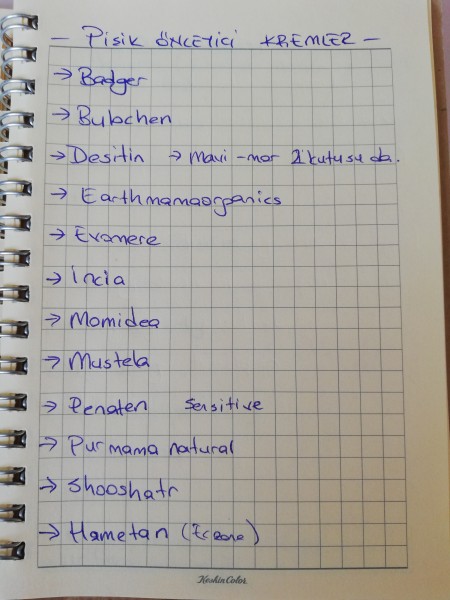 - PİSİK ÖNLEYİCİ KREMLER -
→ Badger
→ Bubchen
→ Desitin → Mavi-mor 2 kutusu da.
→ Earthmamaorganics
→ Evamere
→ İncia
→ Momidea
→ Mustela
→ Penaten Sensitive
→ Pur mama natural
→ Shooshatr
→ Hametan (Eczane)
Keskin Color